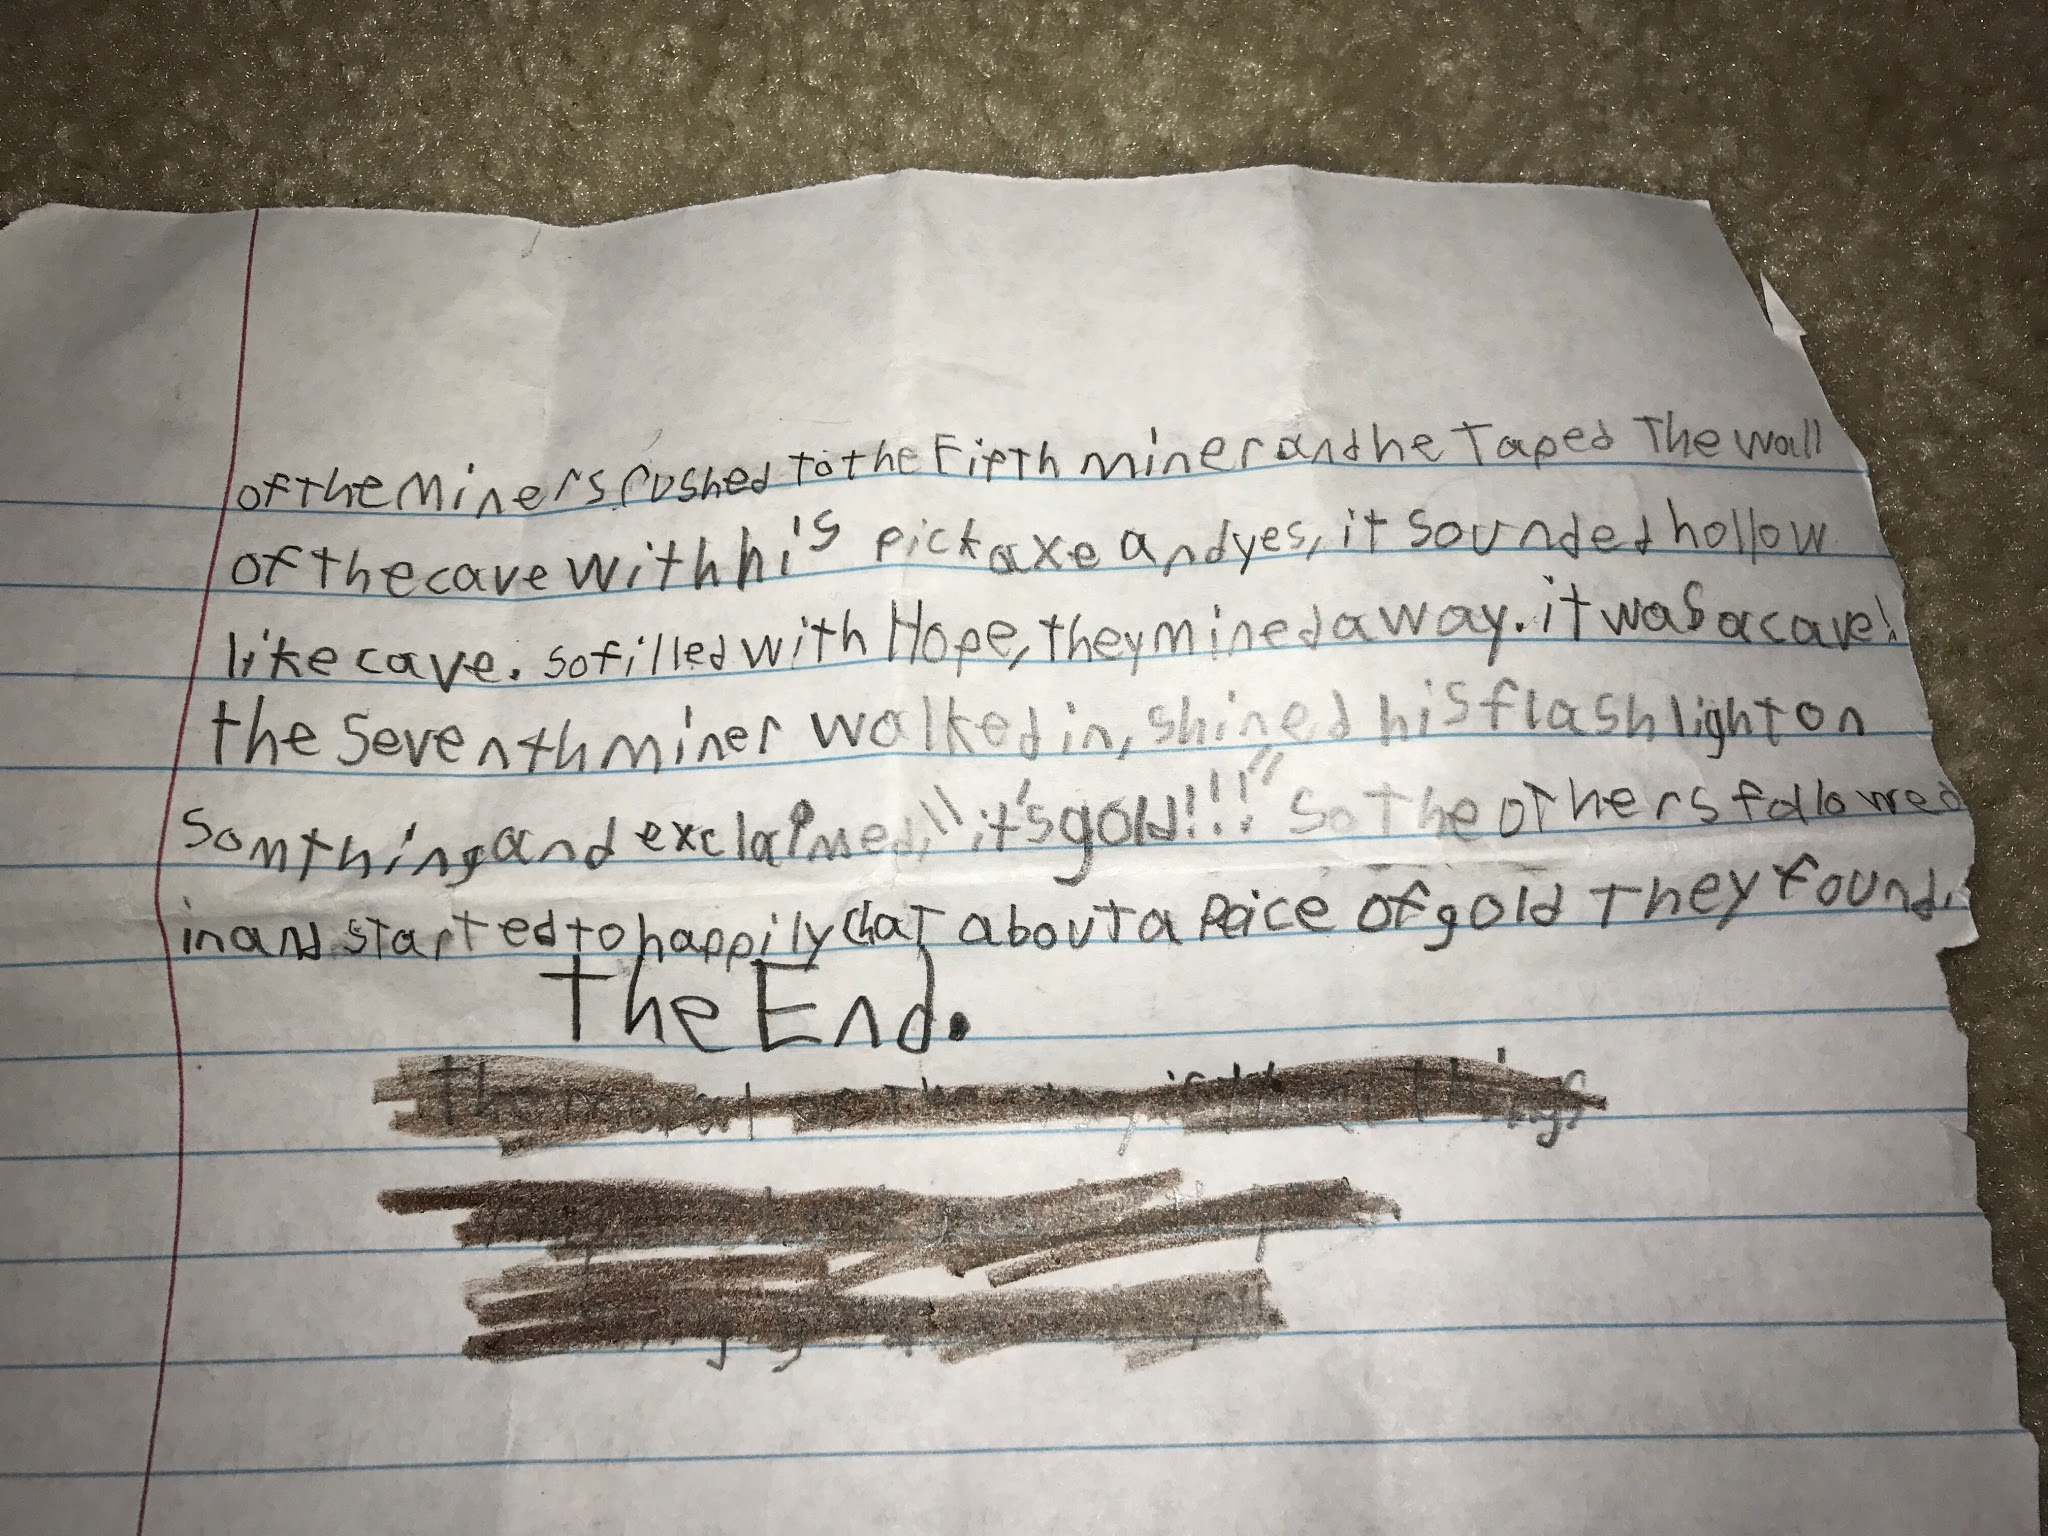 of the miners rushed to the Fifth miner and he Taped The wall
of the cave with his pickaxe and yes, it sounded hollow
like cave. so filled with Hope, they mined away. it was a cave!
the seventh miner walked in, shined his flashlight on
somthing and exclaimed, "it's gold!!!" So The oThers followed
in and started to happily chaT abouT a Peice of gold They found.
The End.
The moral of the is things